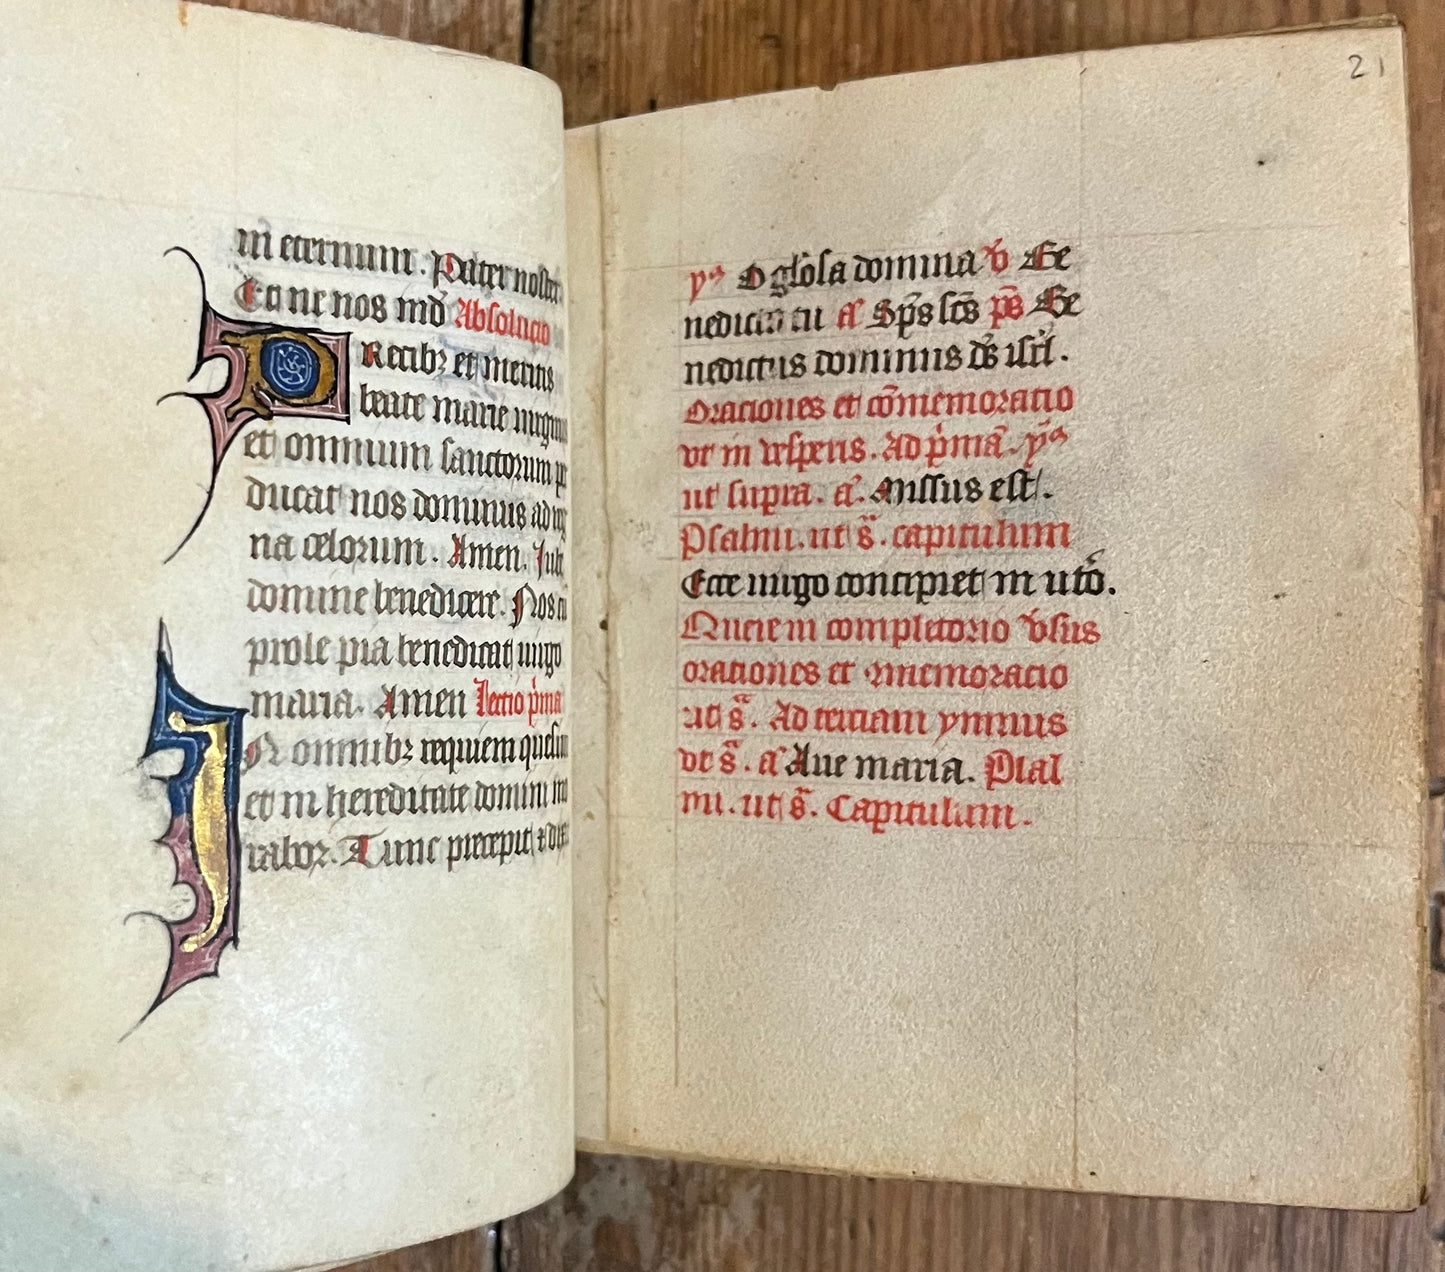 in eternum. Pater noster
Et ne nos ind Absolucio
PRecibz et meritis
beate marie
et omnium sanctorum
ducat nos dominus ad
na celorum. Amen. Iube
domine benedicere. Nos cū
prole pia benedicat uirgo
maria. Amen Lectio p̄ma
IN omnibz requiem
et in hereditate domini
rabor. Tunc precepit
21
yᵒ O gl̄osa domina v̄ Be
nedicta tu a᷑ Sp̄s sc̄s p̄s Be
nedictus dominus ds̄ isrl̄.
Oraciones et cōmemoracio
vt in vesperis. Ad p̄mā. yᵒ
ut supra. a᷑. Missus est.
Psalmi. ut s̄. capitulum
Ecce uirgo concipiet in uto᷑.
completorio v̄sus
oraciones et memoracio
ut s̄. Ad terciam ymnus
vt s̄. a᷑ Aue maria. Psal
mi. ut s̄. Capitulum.